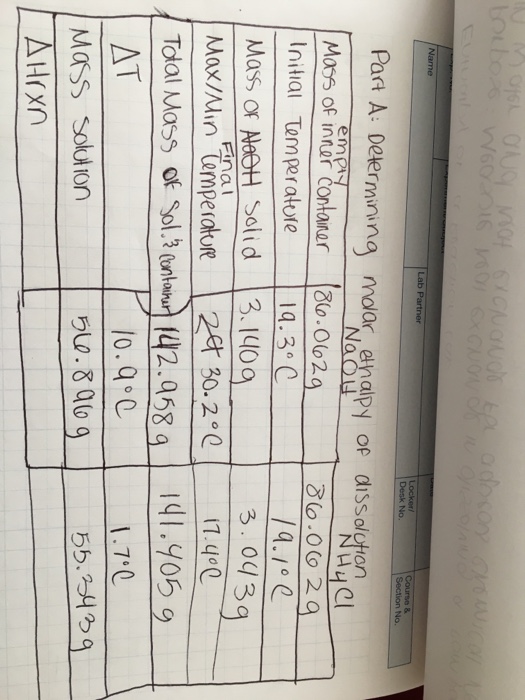 Name
Lab Partner
Locker/
Desk No.
Course &
Section No.
Part A: Determining molar ethalpy of dissolution
NaOH NH4Cl
empty
Mass of inner container 86.062g 86.062g
Initial Temperature 19.3°C 19.1°C
Mass of Solid 3.140g 3.043g
Final
Max/Min Temperature 30.2°C 17.4°C
Total Mass of Sol. & container 142.958g 141.405g
ΔT 10.9°C 1.7°C
Mass solution 56.896g 55.343g
ΔHrxn